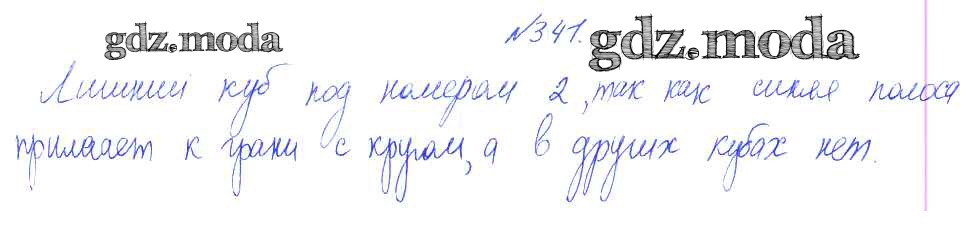 gdz.moda №341. gdz.moda
Лишний куб под номером 2, так как синяя полоса
прилегает к грани с кругом, а в других кубах нет.